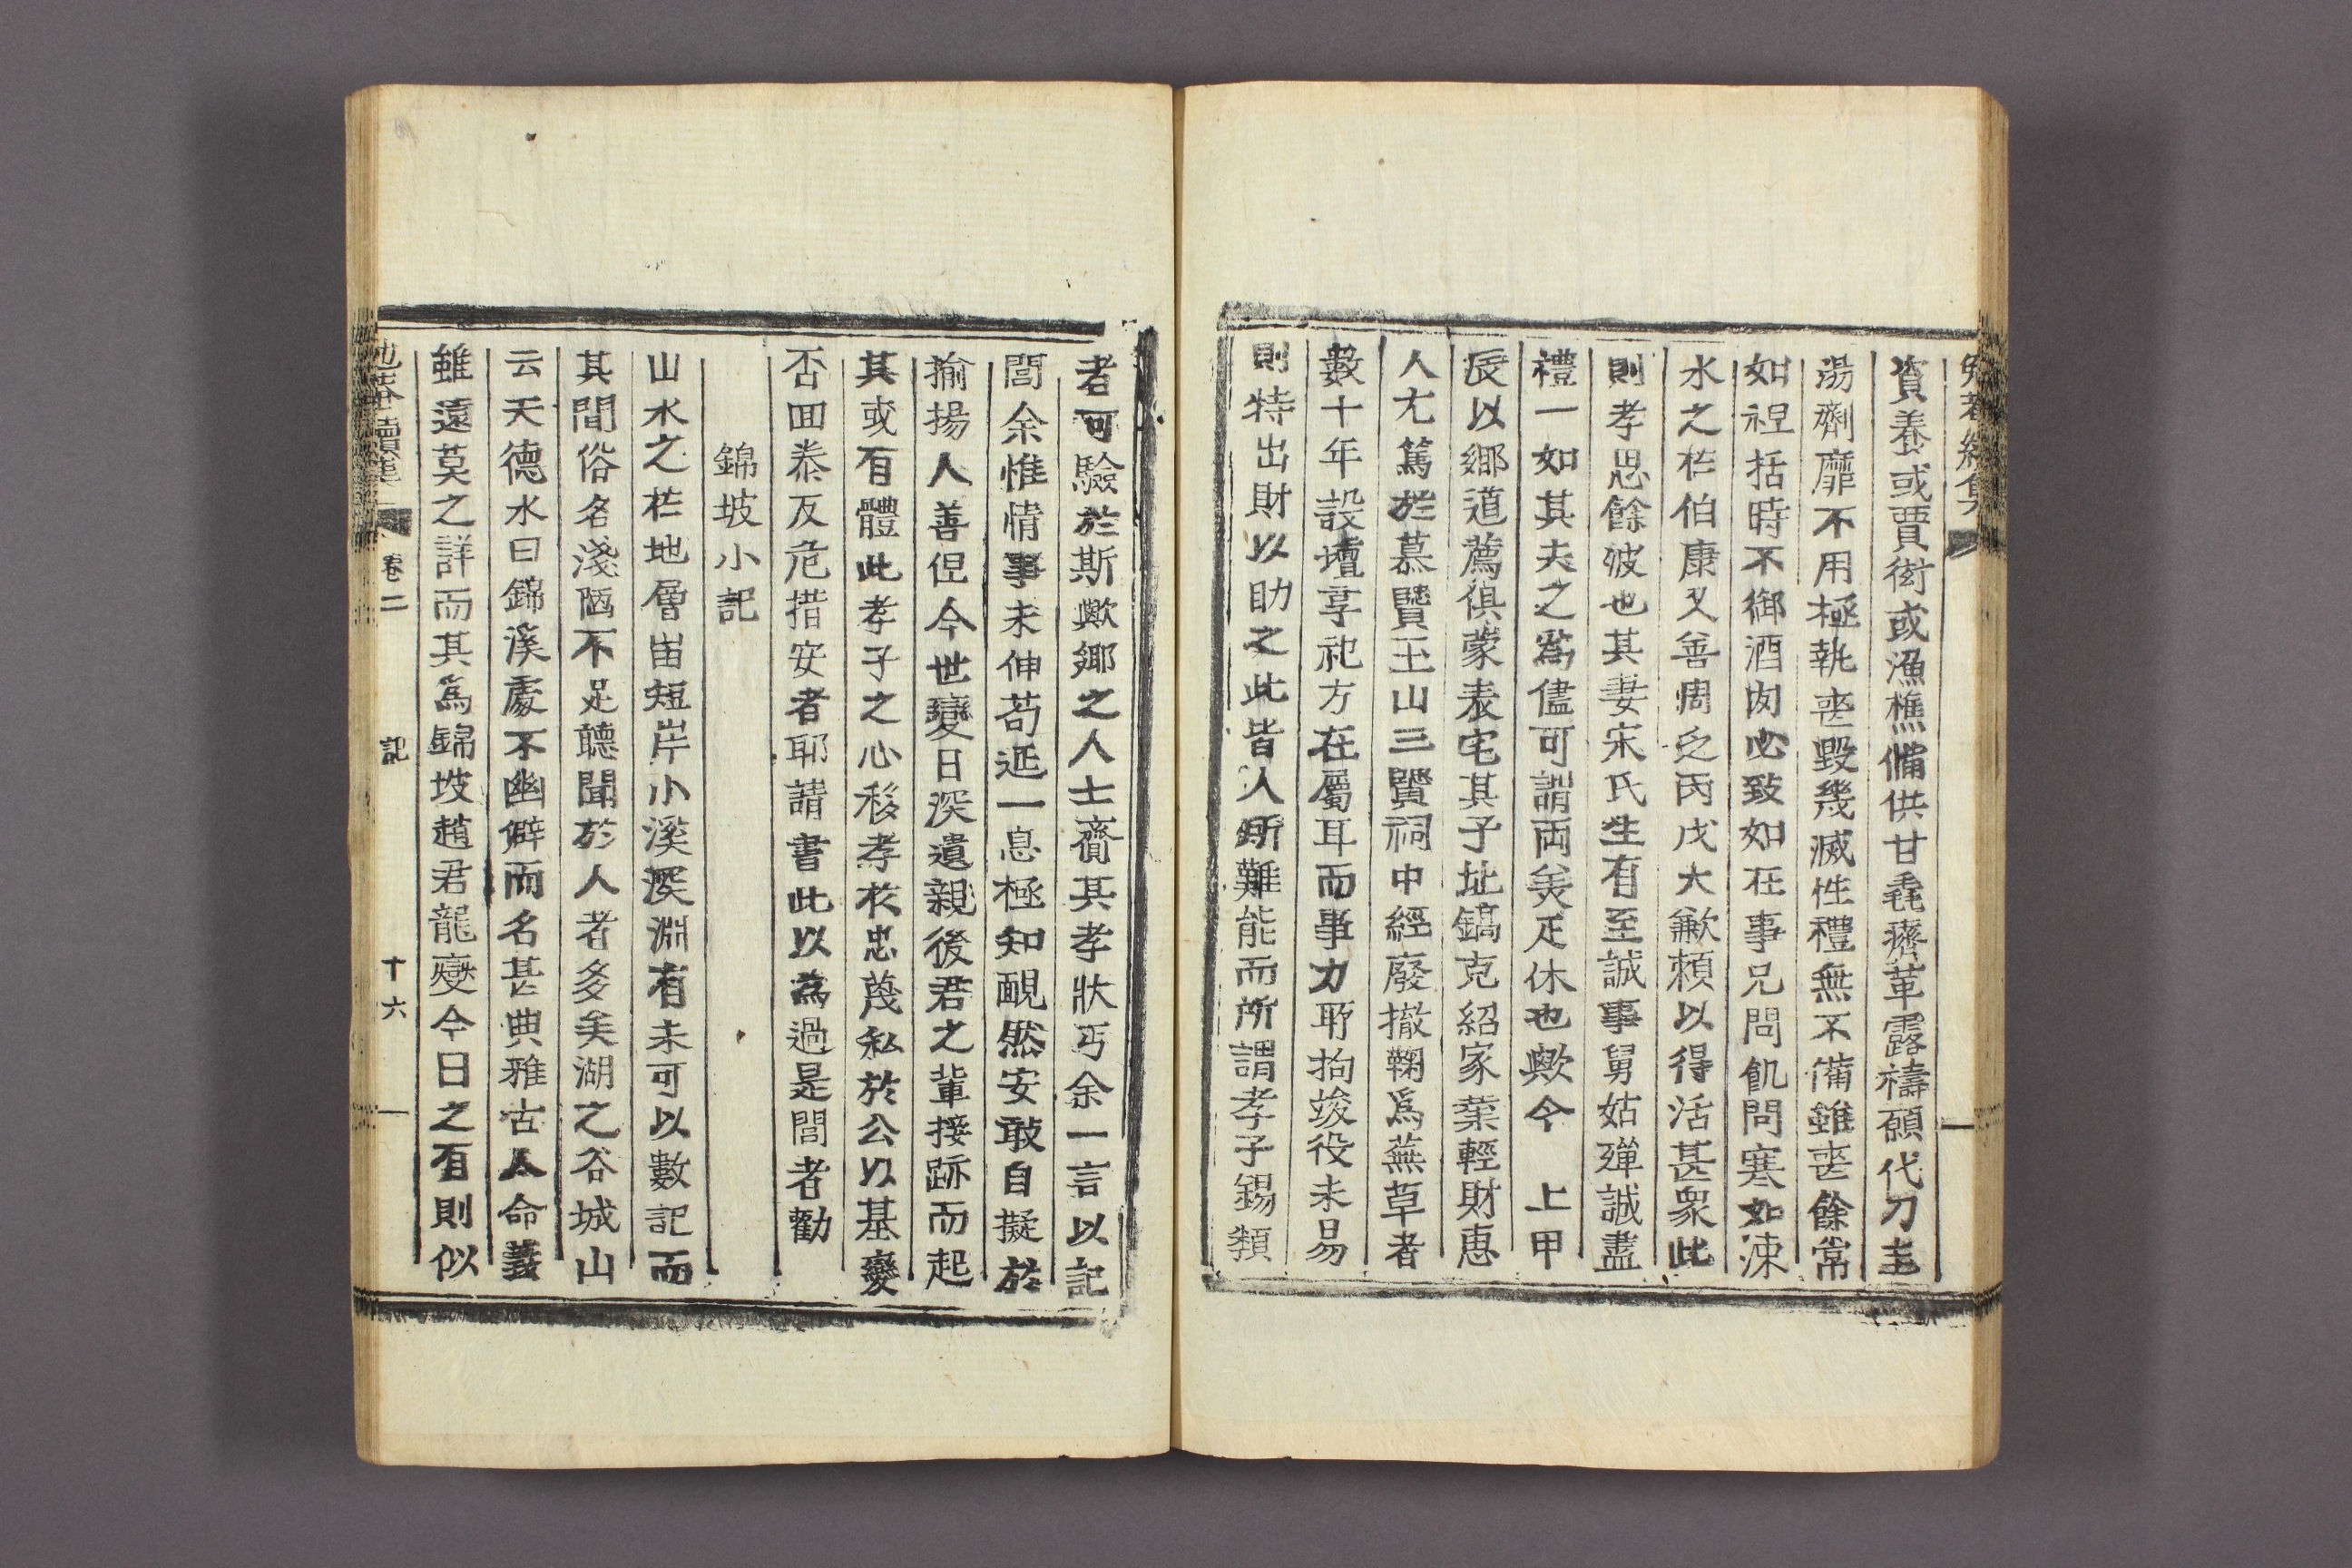 資養或賈衒或漁樵備供甘毳癠革露禱願代刀圭
湯劑靡不用極執喪毀幾滅性禮無不備雖喪餘常
如袒括時不御酒肉必致如在事兄問飢問寒如涷
水之於伯康又善周乏丙戌大歉賴以得活甚衆此
則孝思餘波也其妻宋氏生有至誠事舅姑殫誠盡
禮一如其夫之爲儘可謂両美疋休也歟今 上甲
辰以鄉道薦俱蒙表宅其子址鎬克紹家業輕財惠
人尤篤於慕賢玉山三賢祠中經廢撤鞠爲蕪草者
數十年設壇享祀方在屬耳而事力所拘竣役未易
則特出財以助之此皆人所難能而所謂孝子錫類
者可驗於斯歟鄉之人士齎其孝狀丐余一言以記
閭余惟情事未伸苟延一息極知靦然安敢自擬於
揄揚人善但今世變日深遺親後君之輩接跡而起
其或有體此孝子之心移孝移忠蔑私於公以基變
否回泰反危措安者耶請書此以為過是閭者勸
錦坡小記
山水之在地層峀短岸小溪深淵有未可以數記而
其間俗名淺陋不足聽聞於人者多矣湖之谷城山
云天德水曰錦溪處不幽僻而名甚典雅古人命義
雖遠莫之詳而其爲錦坡趙君龍燮今日之有則似
卷二 記 十六